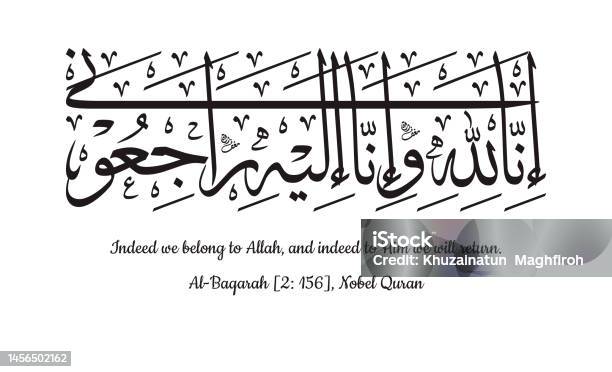 إِنَّا لِلّٰهِ وَإِنَّا إِلَيْهِ رَاجِعُوْنَ
Indeed we belong to Allah, and indeed to Him we will return.
Al-Baqarah [2: 156], Nobel Quran
iStock
Credit: Khuzainatun Maghfiroh
1456502162